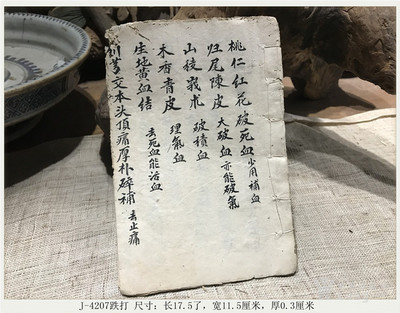 桃仁红花破死血 少用補血
归尾陳皮 大破血亦能破氣
山稜莪朮 破積血
木香青皮 理氣血
生地黄血结 去死血能活血
川芎交本头頂痛厚朴碎補 去止痛
J-4207跌打 尺寸：长17.5了，宽11.5厘米，厚0.3厘米